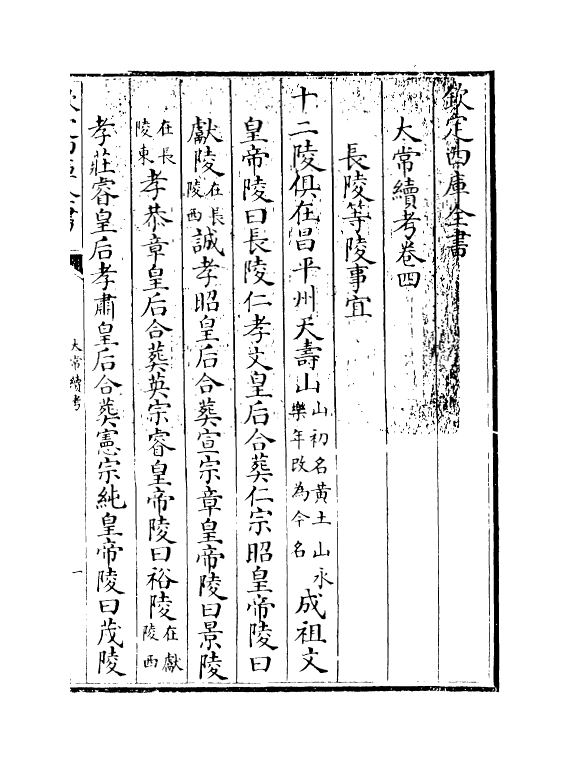 欽定四庫全書
太常續考卷四
長陵等陵事宜
十二陵俱在昌平州天壽山山初名黃土山永樂年改為今名成祖文
皇帝陵曰長陵仁孝文皇后合葬仁宗昭皇帝陵曰
獻陵在長陵西誠孝昭皇后合葬宣宗章皇帝陵曰景陵
在長陵東孝恭章皇后合葬英宗睿皇帝陵曰裕陵在獻陵西
孝莊睿皇后孝肅皇后合葬憲宗純皇帝陵曰茂陵
太常續考
一